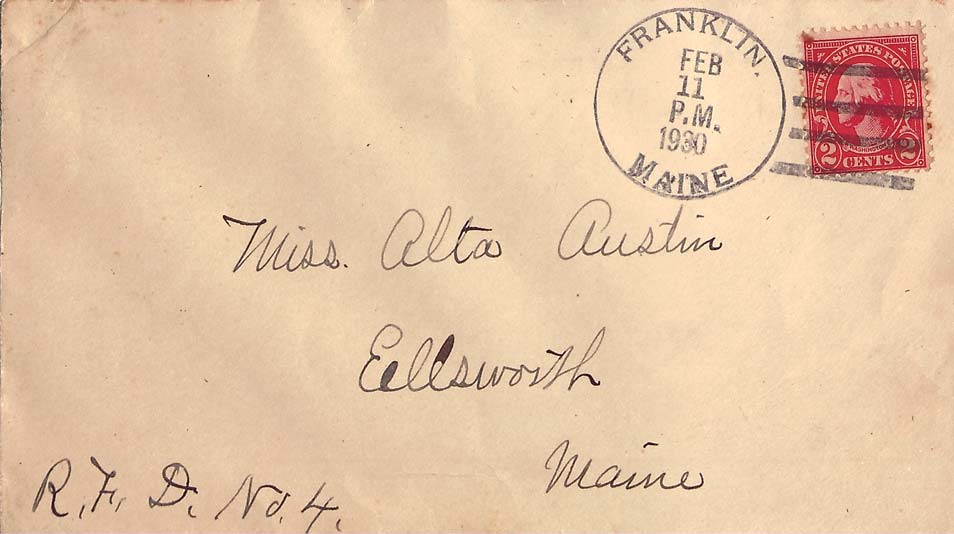 FRANKLIN.
FEB
11
P.M.
1930
MAINE
UNITED STATES POSTAGE
WASHINGTON
2 CENTS 2
Miss. Alta Austin
Eellsworth
Maine
R.F.D. No. 4.